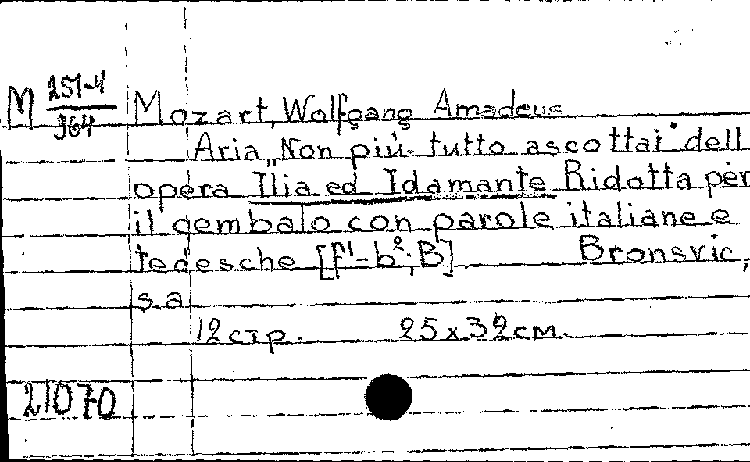 M 251-4/964 Mozart, Wolfgang Amadeus
Aria „Non più tutto ascottai" dell
opera Ilia ed Idamante Ridotta per
il gembalo con parole italiane e
tedesche [f¹-b²; B] Bronsvic,
s.a
12 стр. 25x32 см.
21070